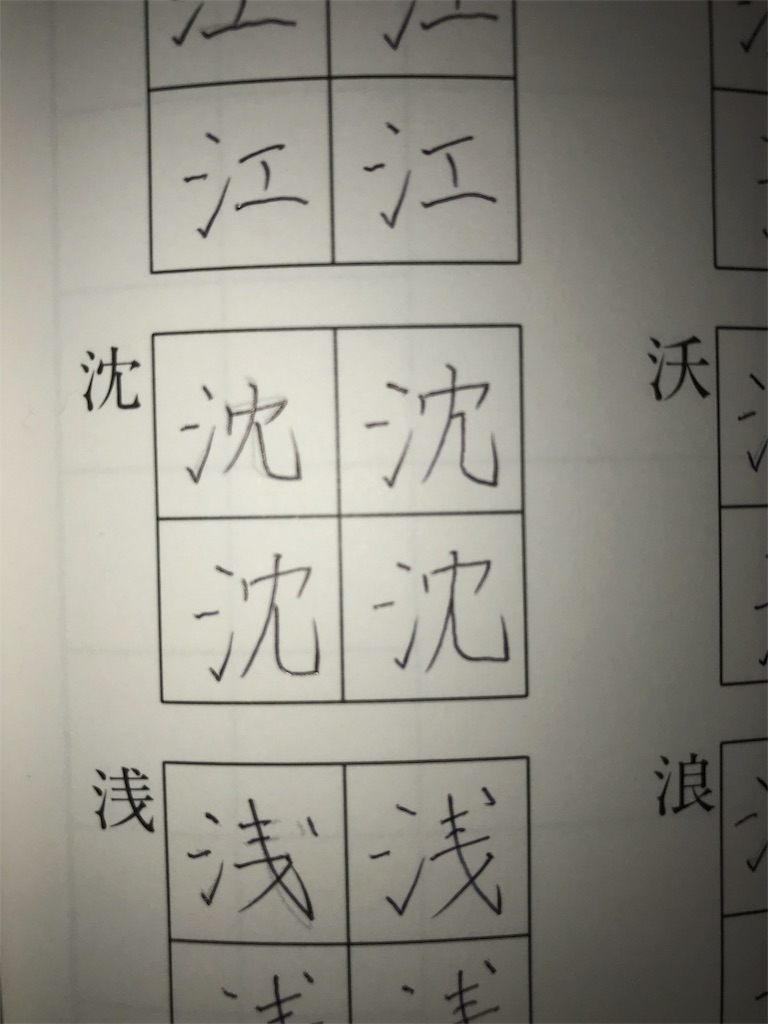 江 江
江 江
沈
沈 沈
沈 沈
沃
浅
浅 浅
浅 浅
浪